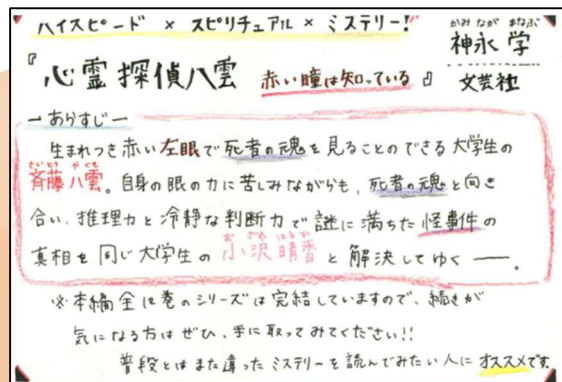 ハイスピード × スピリチュアル × ミステリー!
かみ なが まなぶ
神永 学
『心霊探偵八雲 赤い瞳は知っている』
文芸社
ーあらすじー
生まれつき赤い左眼で死者の魂を見ることのできる大学生の
さいとう やくも
斉藤 八雲。自身の眼の力に苦しみながらも、死者の魂と向き
合い、推理力と冷静な判断力で謎に満ちた怪事件の
お ざわ はる か
真相を同じ大学生の 小沢 晴香 と解決してゆく ――。
※本編全12巻のシリーズは完結していますので、続きが
気になる方はぜひ、手に取ってみてください!!
普段とはまた違ったミステリーを読んでみたい人にオススメです。